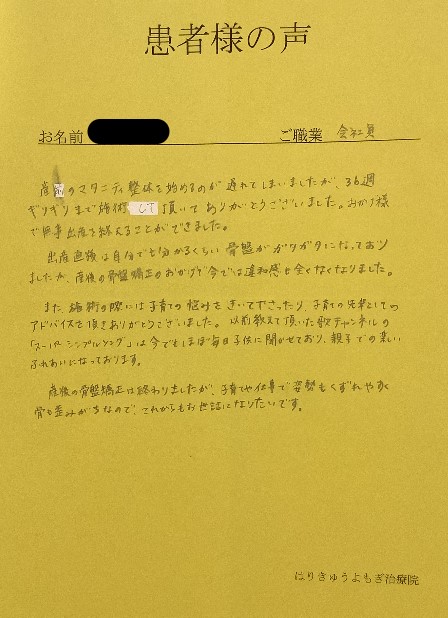 患者様の声
お名前
ご職業 会社員
産前のマタニティ整体を始めるのが遅れてしまいましたが、36週
ギリギリまで施術して頂いてありがとうございました。おかげ様
で無事出産を終えることができました。
出産直後は自分でも分かるくらい骨盤がガタガタになっており
ましたが、産後の骨盤矯正のおかげで今では違和感も全くなくなりました。
また、施術の際には子育ての悩みをきいて下さったり、子育ての先輩としての
アドバイスを頂きありがとうございました。以前教えて頂いた歌チャンネルの
「スーパーシンプルソング」は今でもほぼ毎日子供に聞かせており、親子での楽しい
ふれあいになっております。
産後の骨盤矯正は終わりましたが、子育てや仕事で姿勢もくずれやすく
骨も歪みがちなので、これからもお世話になりたいです。
はりきゅうよもぎ治療院